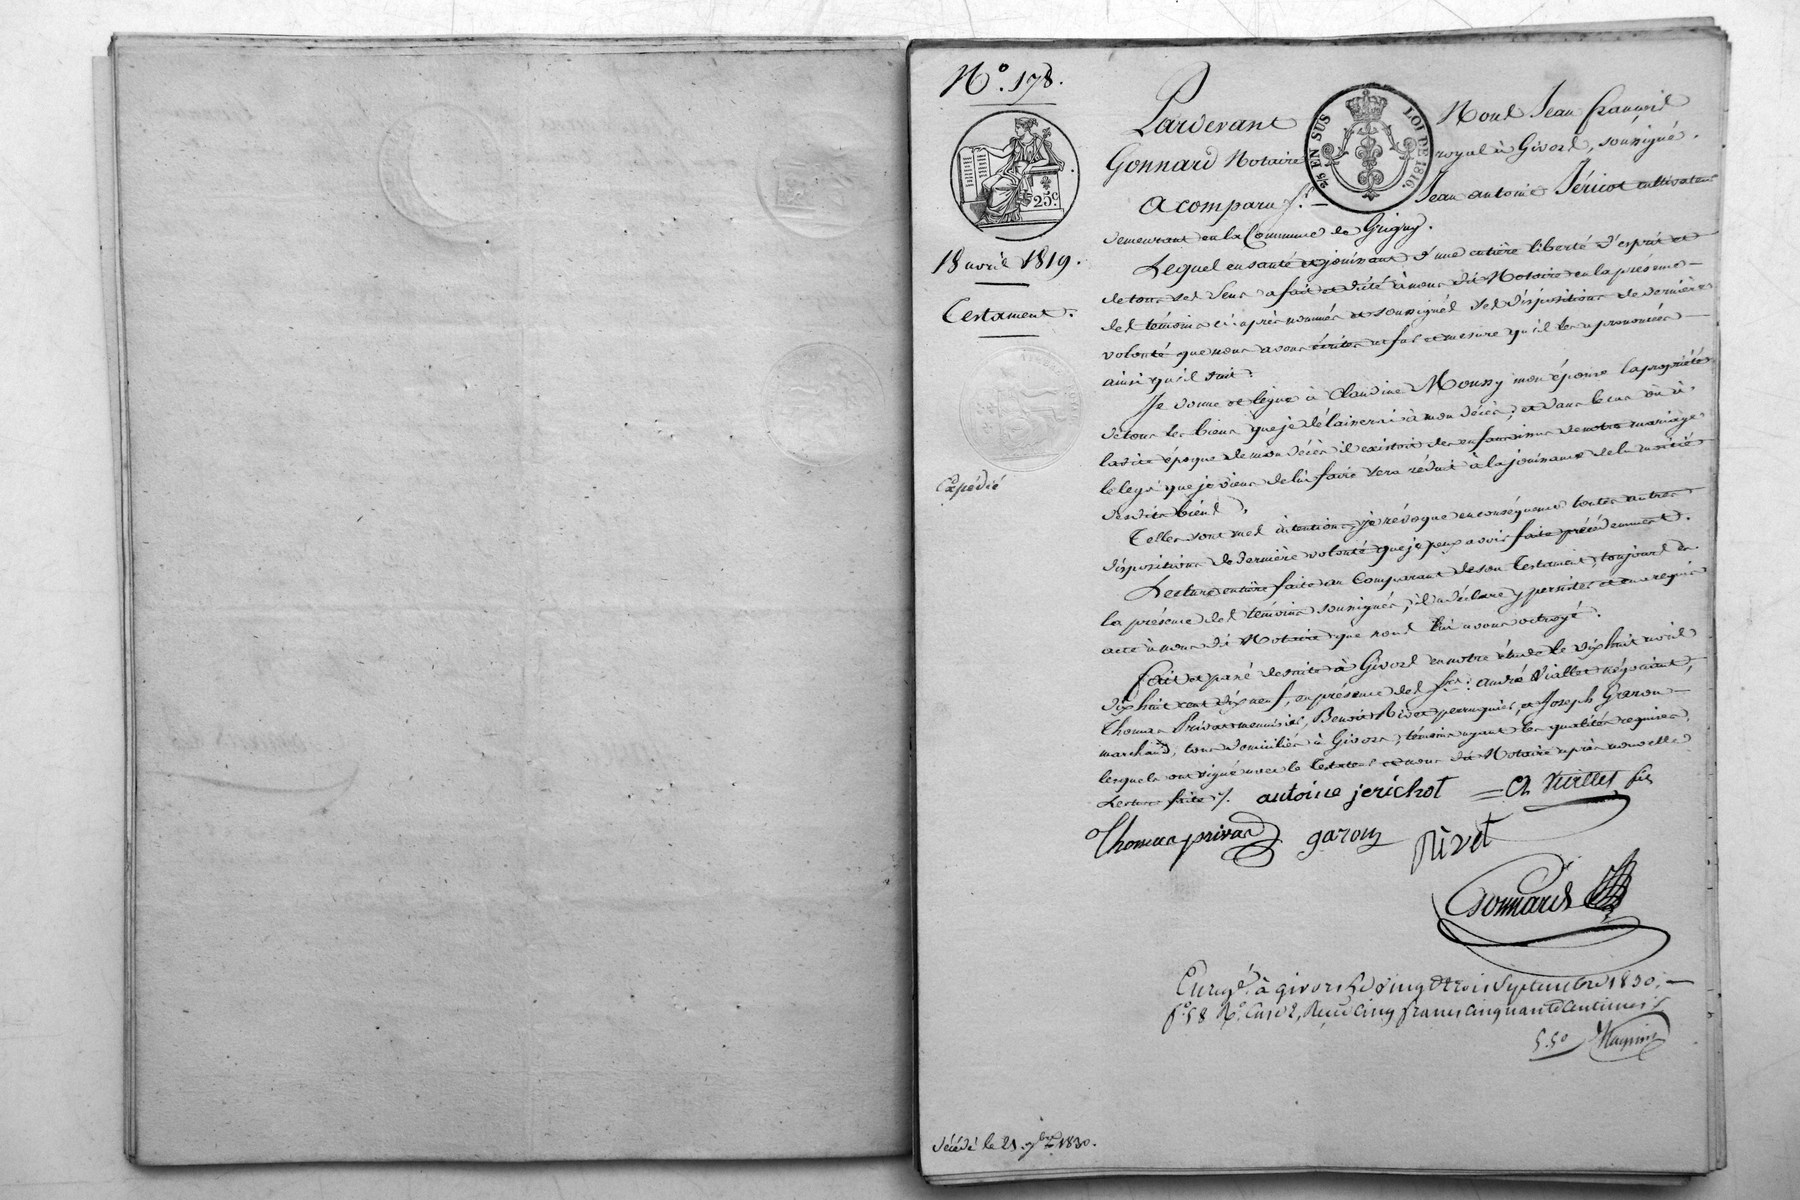 N.º 178.
25.c
18 avril 1819.
Testament.
Expédié
2/5 EN SUS LOI DE 1816.
Pardevant Nous Jean françois
Gonnard Notaire royal à Givors, soussigné.
A comparu s.r Jean antoine Jéricot cultivateur
demeurant en la Commune de Grigny.
Lequel en santé et jouissant d'une entière liberté d'esprit et
de tous ses sens a fait et dicté à nous dit Notaire en la présence
des témoins ci-après nommés et soussignés ses dispositions de dernière
volonté que nous avons écrites at fur et mesure qu'il les a prononcées
ainsi qu'il suit:
Je donne et lègue à Claudine Moussy mon épouse la propriété
de tous les biens que je délaisserai à mon décès, et dans le cas où à
ladite époque de mon décès il existoit des enfans issus de notre mariage
le legs que je viens de lui faire sera réduit à la jouissance de la moitié
desdits biens.
Telles sont mes intentions, je révoque en conséquence toutes autres
dispositions de dernière volonté que je peux avoir faite précédemment.
Lecture entière faite au Comparant de son Testament, toujours en
la présence des témoins soussignés, il a déclaré y persister et en a requis
acte à nous dit Notaire que nous lui avons octroyé.
fait et passé de suite à Givors en notre étude le dix huit avril
dix huit cent dix neuf, en présence des srs. andré Viallet négociant,
Thomas Privas menuisier, Benoit Rivet perruquier, et Joseph Garon
marchand, tous domiciliés à Givors, témoins ayant les qualités requises,
lesquels ont signé avec le Testateur et nous dit Notaire après nouvelle
Lecture faite ./. antoine jerichot = A Viallet fils
Thomas privas garon Rivet
Gonnard
Enregé. à givors le vingt trois Septembre 1830.
fº. 58 Rº. Case 2, Reçu cinq francs cinquante centimes
5.50
décédé le 21 7bre 1830.